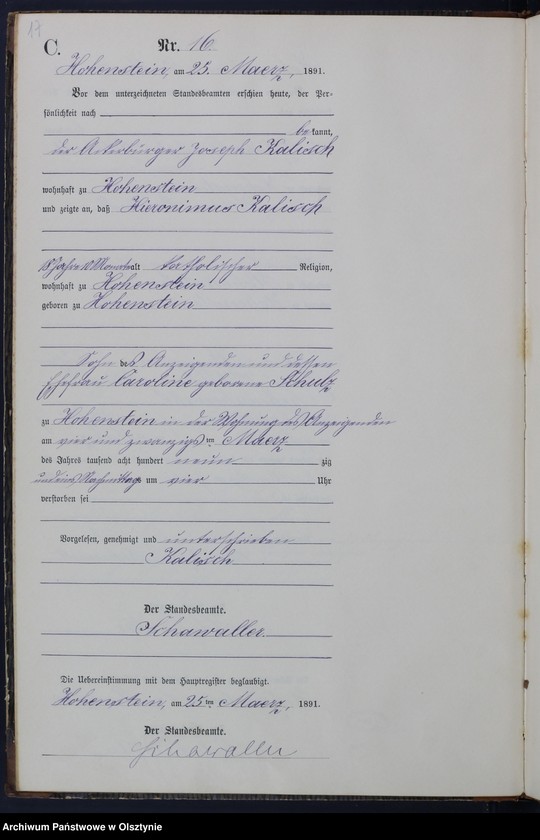 17
C. Nr. 16.
Hohenstein, am 25. Maerz, 1891.
Vor dem unterzeichneten Standesbeamten erschien heute, der Per-
sönlichkeit nach
bekannt,
der Ackerbürger Joseph Kalisch
wohnhaft zu Hohenstein
und zeigte an, daß Hieronimus Kalisch
Jahre 10 Monate alt katholischer Religion,
wohnhaft zu Hohenstein
geboren zu Hohenstein
Sohn des Anzeigenden und dessen
Ehefrau Caroline geborene Schulz
zu Hohenstein in der Wohnung des Anzeigenden
am vier und zwanzigsten Maerz
des Jahres tausend acht hundert neun zig
und eins Nachmittags um vier Uhr
verstorben sei
Vorgelesen, genehmigt und unterschrieben
Kalisch
Der Standesbeamte.
Schawaller
Die Uebereinstimmung mit dem Hauptregister beglaubigt.
Hohenstein, am 25ten Maerz, 1891.
Der Standesbeamte.
Schawaller
Archiwum Państwowe w Olsztynie